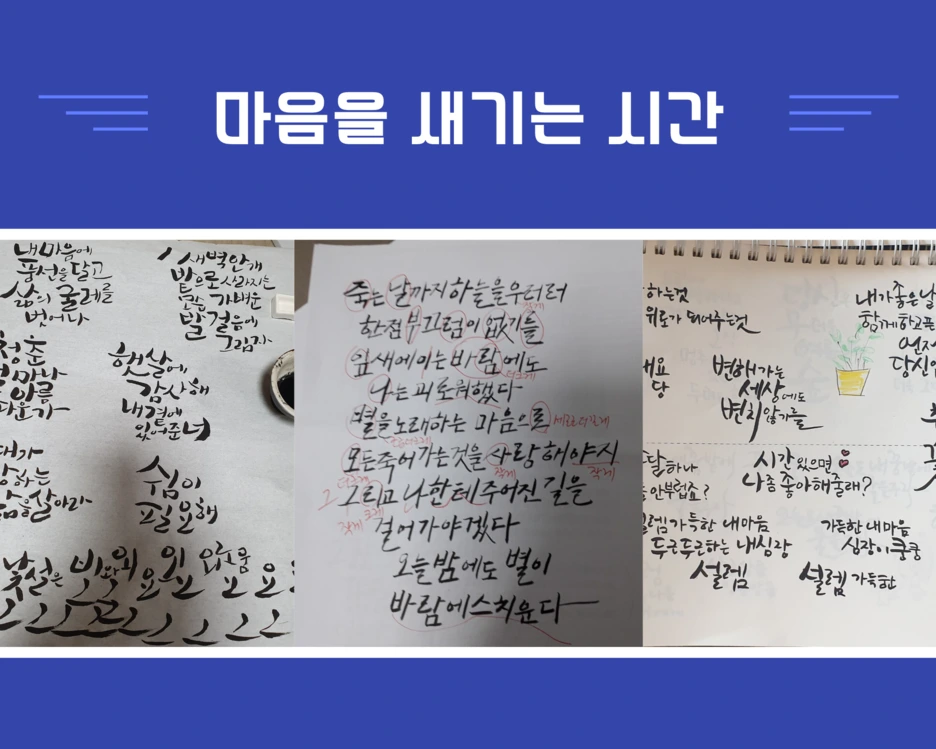 마음을 새기는 시간
내마음에
풍선을달고
삶의 굴레를
벗어나
새벽안개
밭으로사라지는
가벼운
발걸음에
그림자
청춘
아름
다운가
햇살에
감사해
내곁에
있어준너
삶을살아라
쉼이
필요해
낯설은
죽는날까지하늘을우러러
한점부끄럼이없기를
잎새에이는바람에도
나는괴로워했다
별을노래하는 마음으로
모든죽어가는것을 사랑해야지
그리고 나한테주어진길을
걸어가야겠다
오늘밤에도 별이
바람에스치운다
작게
더크게
세로더길게
작게
작게
크게
작게
하는것
위로가 되어주는것
내가좋은날
함께하고픈
당신
변해가는
세상에도
변치않기를
시간있으면
나좀좋아해줄래?
안부럽죠?
설렘가득한 내마음
두근두근하는 내심장
설렘
가득한 내마음
심장이쿵쿵
설렘가득한